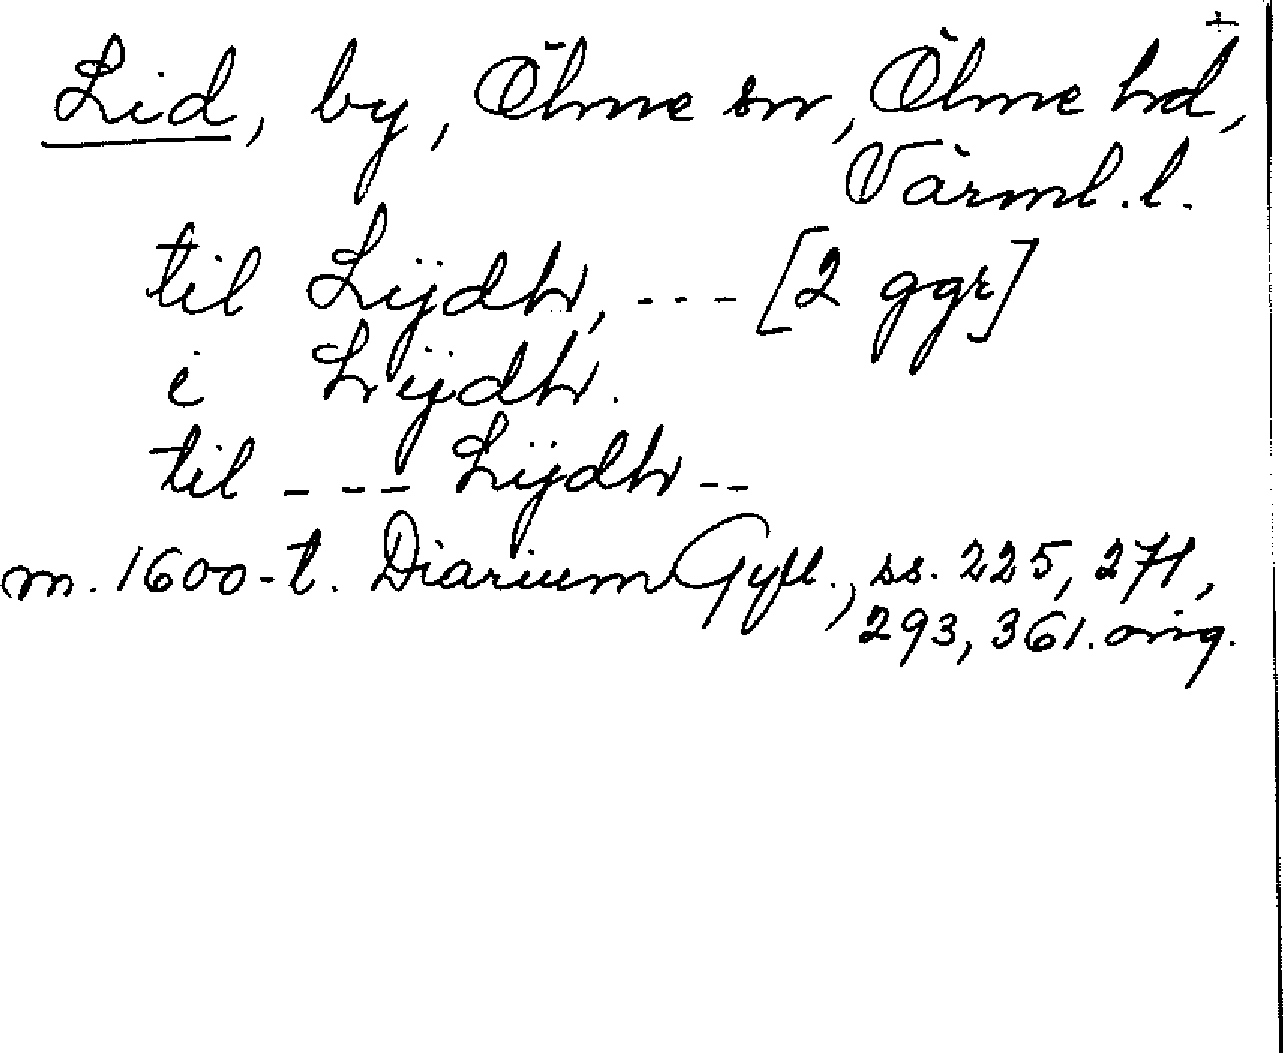 +
Lid, by, Ölme sn, Ölme hd,
Värml. l.
til Lijdh, --- [2 ggr]
i Lijdh.
til --- Lijdh --
m. 1600-t. Diarium Gyll., ss. 225, 271,
293, 361. orig.